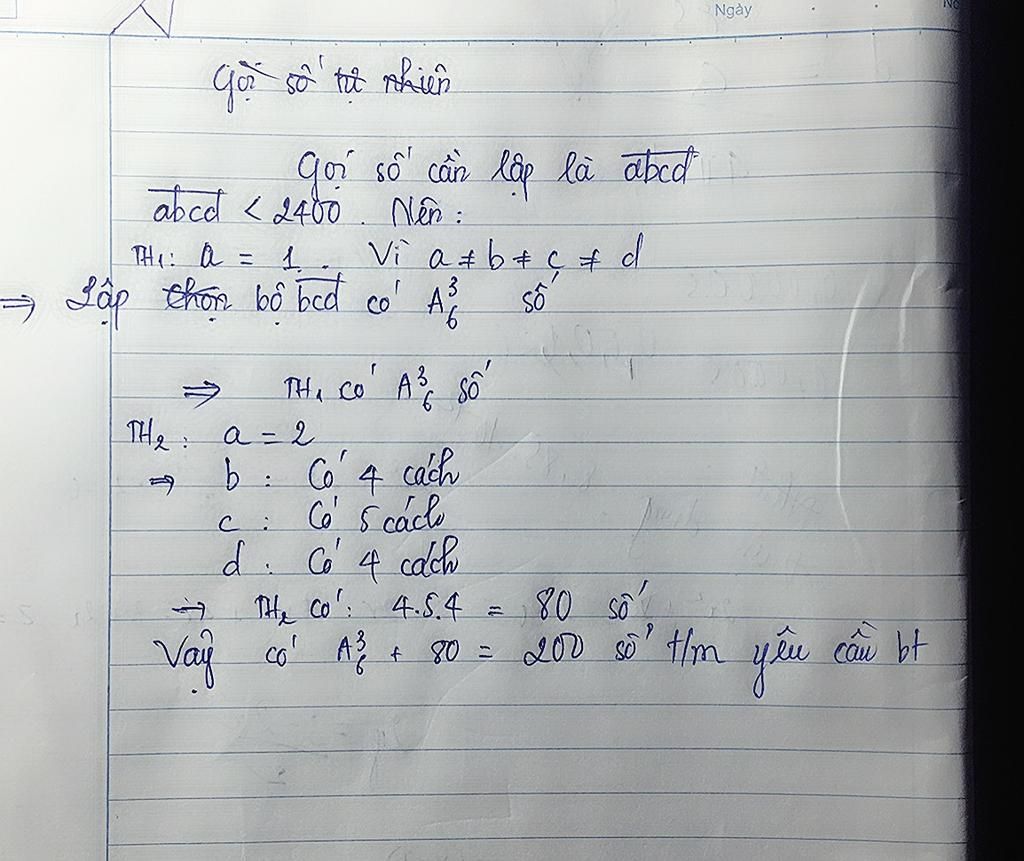 Ngày
Gọi số tự nhiên
Gọi số cần lập là abcd
abcd < 2400. Nên:
TH1: a = 1. Vì a ≠ b ≠ c ≠ d
⇒ Lập chọn bộ bcd có A³₆ số
⇒ TH1 có A³₆ số
TH2: a = 2
⇒ b: Có 4 cách
c: Có 5 cách
d: Có 4 cách
→ TH2 có: 4.5.4 = 80 số
Vậy có A³₆ + 80 = 200 số t/m yêu cầu bt